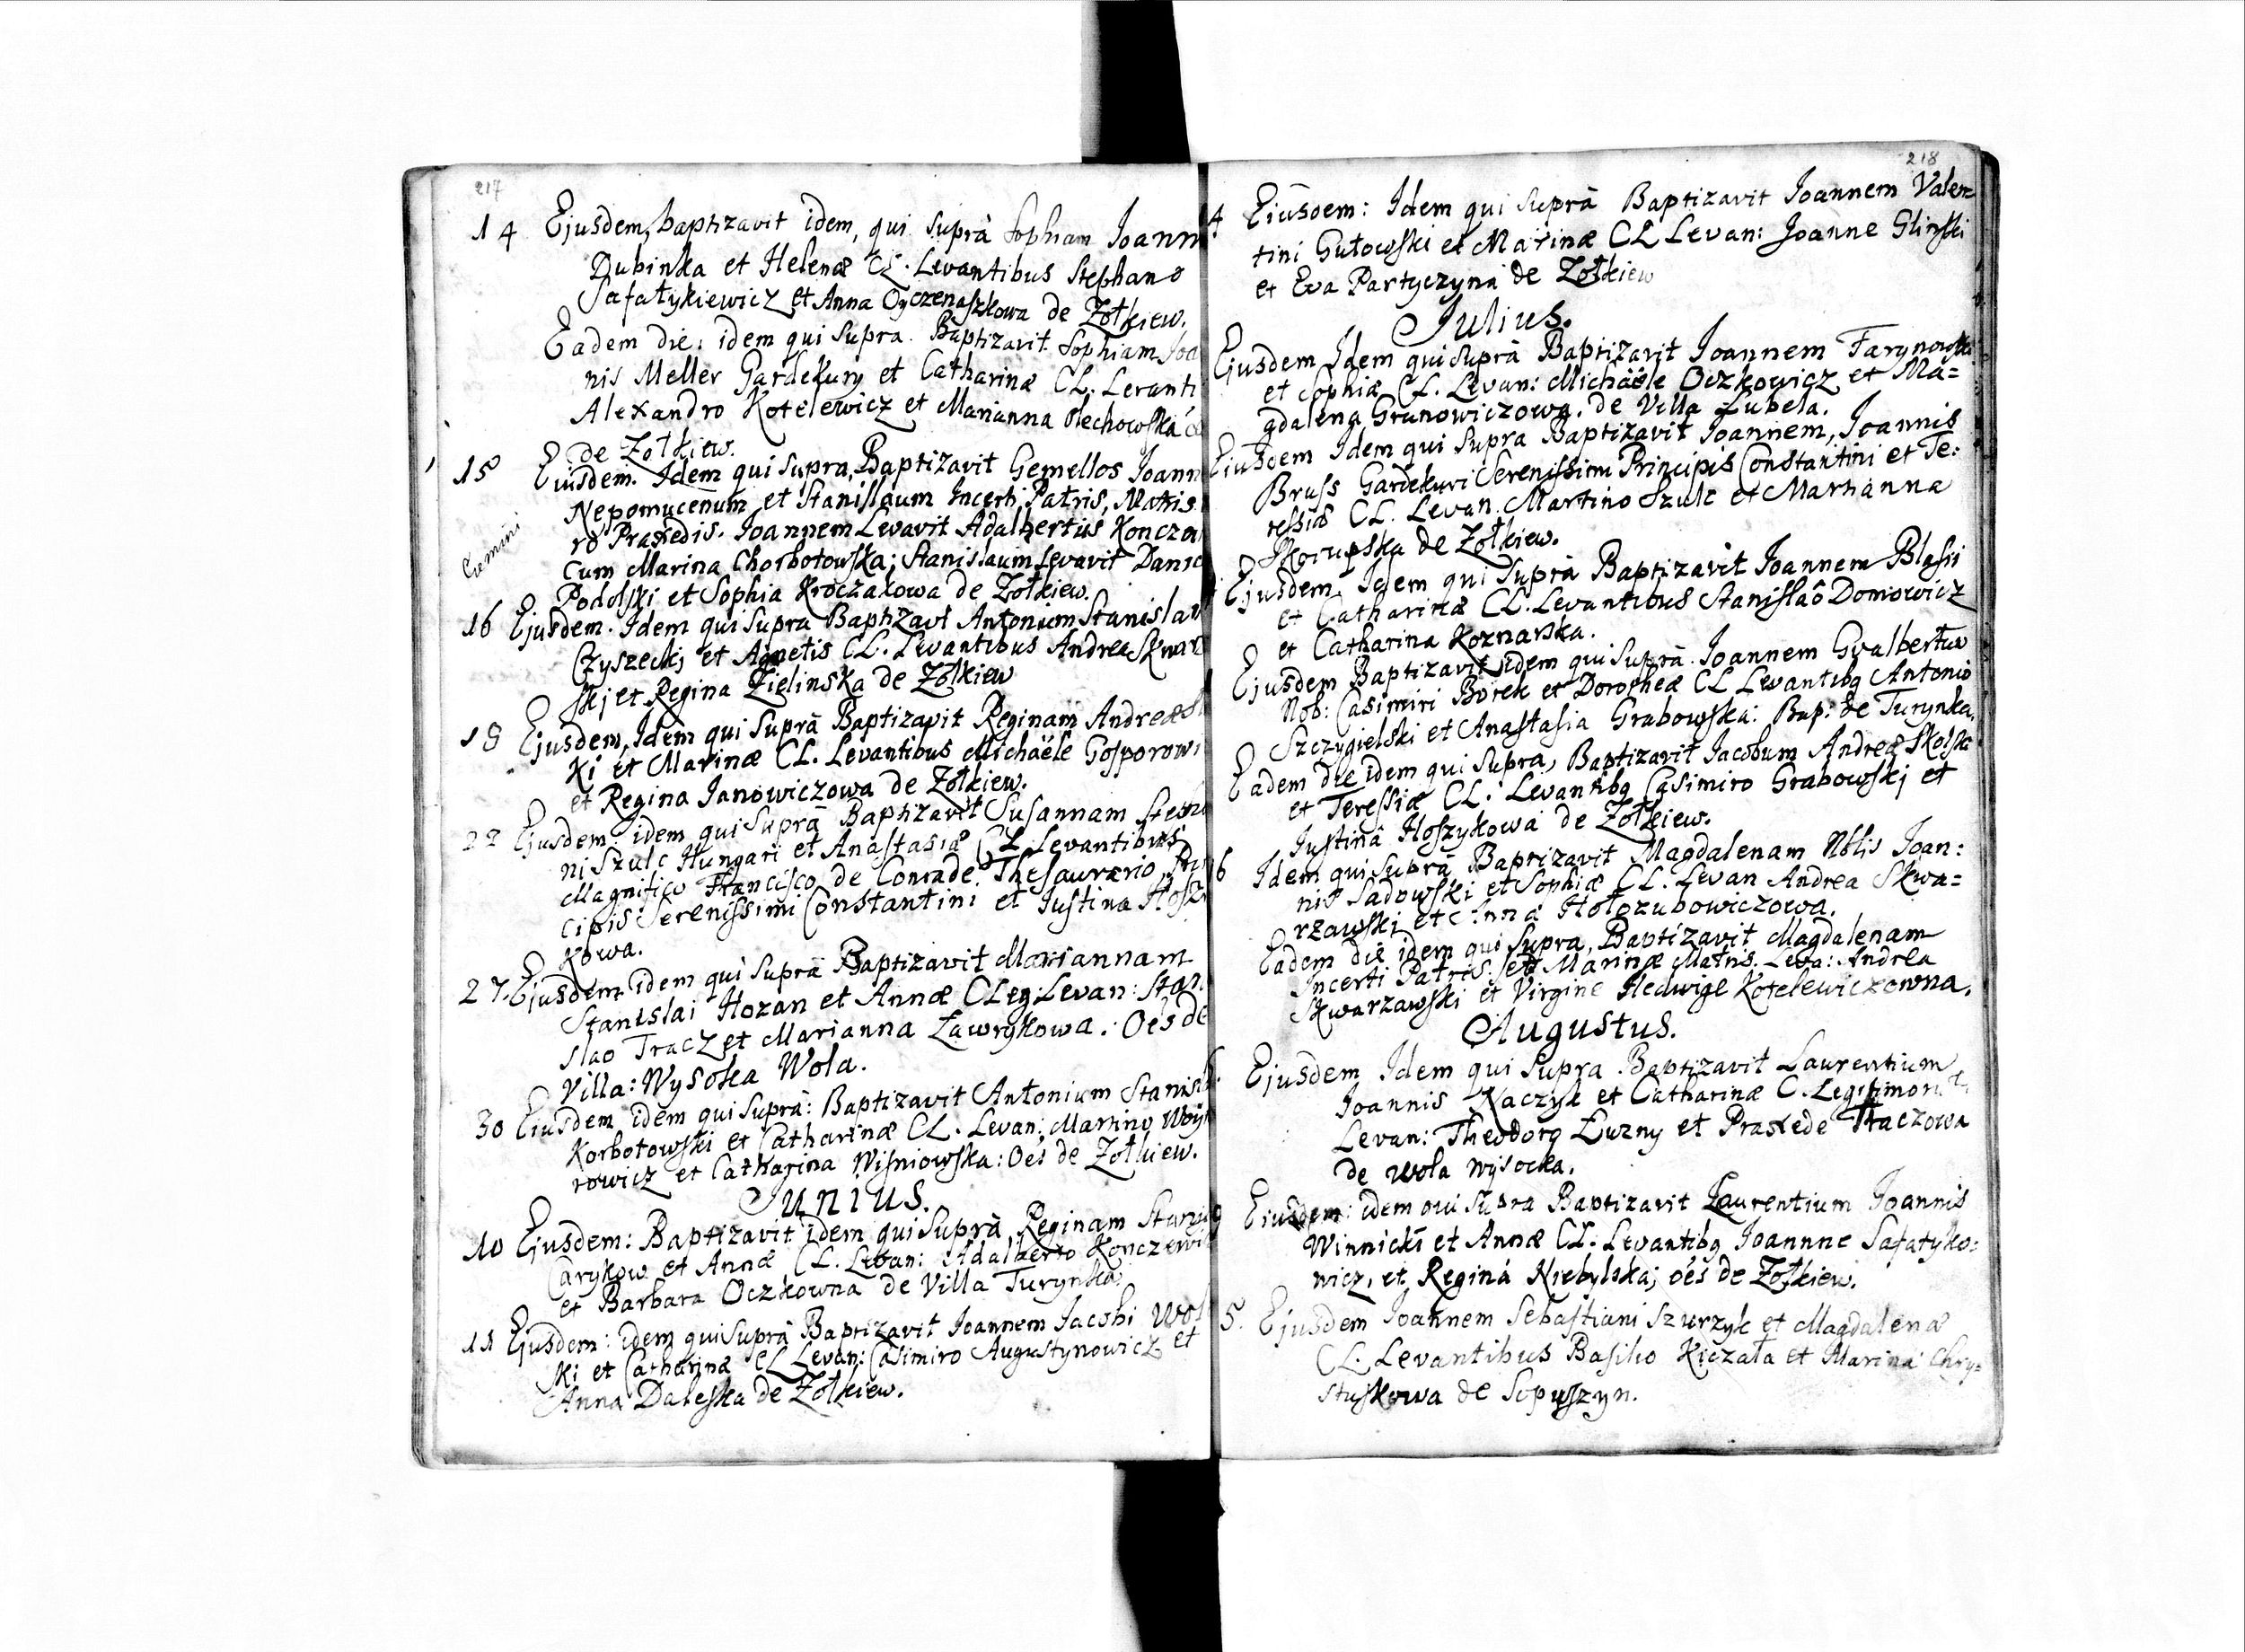 217
14 Ejusdem, baptizavit idem, qui suprà Sophiam Joann
Dubinka et Helenæ CL. Levantibus Stephano
Safatykiewicz et Anna Oyczenaszkowa de Zołkiew.
Eadem die: idem qui supra. Baptizavit Sophiam Joa
nis Meller Gardekury et Catharinæ CL. Levanti
Alexandro Kotelewicz et Marianna Olechowska
de Zołkiew.
15 Eiusdem. Idem qui supra, Baptizavit Gemellos Joann
Gemini
Nepomucenum et Stanislaum Incerti Patris, Matris
ro Praxedis. Joannem Levavit Adalbertus Koncze
Cum Marina Chorbotowska; Stanislaum Levavit Danie
Podolski et Sophia Kroczakowa de Zołkiew.
16 Ejusdem. Idem qui supra Baptizavt Antonium Stanislai
Czyszeckj et Agnetis CL. Levantibus Andrea Skwar
skj et Regina Zielinska de Zołkiew
18 Ejusdem, Idem qui suprà Baptizavit Reginam Andreæ
ki et Marinæ CL. Levantibus Michaële Gosporowi
et Regina Janowiczowa de Zołkiew.
22 Ejusdem: idem qui suprà Baptizavit Susannam
ni Szulc Hungari et Anastasiæ CL Levantibus
Magnifico Francisco de Conrade Thesaurario Prin
cipis Serenissimi Constantini et Justina Hoszy
kowa.
27. Ejusdem idem qui suprà Baptizavit Mariannam
Stanislai Hozan et Annæ CLeg: Levan: Stan.
slao Tracz et Marianna Ławrykowa. Oēs de
Villa: Wysoka Wola.
30 Eiusdem idem qui suprà: Baptizavit Antonium Stanisl
Korbotowski et Catharinæ CL. Levan: Martino Woy
rowicz et Catharina Wiśniowska: Oēs de Zołkiew.
Junius.
10 Ejusdem: Baptizavit idem qui suprà Reginam Stani
Carykow et Annæ CL. Levan: Adalberto Konczewi
et Barbara Oczkowna de Villa Turynka
11 Ejusdem: idem qui suprà Baptizavit Joannem Jacobi Wol
ski et Catharinæ CL Levan: Casimiro Augustynowicz et
Anna Daleska de Zołkiew.
218
4 Eiusdem: Idem qui suprà Baptizavit Joannem Valen
tini Gutowski et Marinæ CL Levan: Joanne Glinski
et Eva Partyczyna de Zołkiew
Julius.
Ejusdem Idem qui suprà Baptizavit Joannem Farynowski
et Sophiæ CL. Levan: Michaële Oczkowicz et Ma=
gdalena Grunowiczowa. de Villa Lubela.
Eiusdem Idem qui supra Baptizavit Joannem, Joannis
Bruss Gardekuri Serenissimi Principis Constantini et Te:
ressiæ CL. Levan. Martino Szulc et Marianna
Skorupska de Zołkiew.
Ejusdem Idem qui suprà Baptizavit Joannem Blasii
et Catharinæ CL. Levantibus Stanislaô Domowicz
et Catharina Koznarska.
Ejusdem Baptizavit idem qui suprà Joannem Gvalbertum
Nob: Casimiri Borek et Dorotheæ CL Levantibq Antonio
Szczygielski et Anastasia Grabowska: Bap: de Turynka.
Eadem die idem qui supra, Baptizavit Jacobum Andreæ Skolsk
et Teressiæ CL. Levantibq Casimiro Grabowskj et
Justina Hoszykowa de Zołkiew.
6 Idem qui suprà Baptizavit Magdalenam Nblis Joan:
nis Sadowski et Sophiæ CL. Levan Andrea Skwa=
rzawski et Anna Hołozubowiczowa.
Eadem die idem qui supra, Baptizavit Magdalenam
Incerti Patris. et Marinæ Matris. Leva: Andrea
Skwarzawski et Virgine Hedwige Kotelewiczowna.
Augustus.
Ejusdem Idem qui supra Baptizavit Laurentium
Joannis Kaczyk et Catharinæ C. Legitimor
Levan: Theodoro Łuzny et Praxede Tkaczowa
de Wola Wysocka.
Eiusdem: idem qui supra Baptizavit Laurentium Joannis
Winnicki et Annæ CL. Levantibq Joannne Safatyko:
wicz, et Reginá Niebylska; oēs de Zołkiew.
5. Ejusdem Joannem Sebastiani Szurzyk et Magdalenæ
CL. Levantibus Basilio Kiczata et Marina Chry=
stuskowa de Sopuszyn.